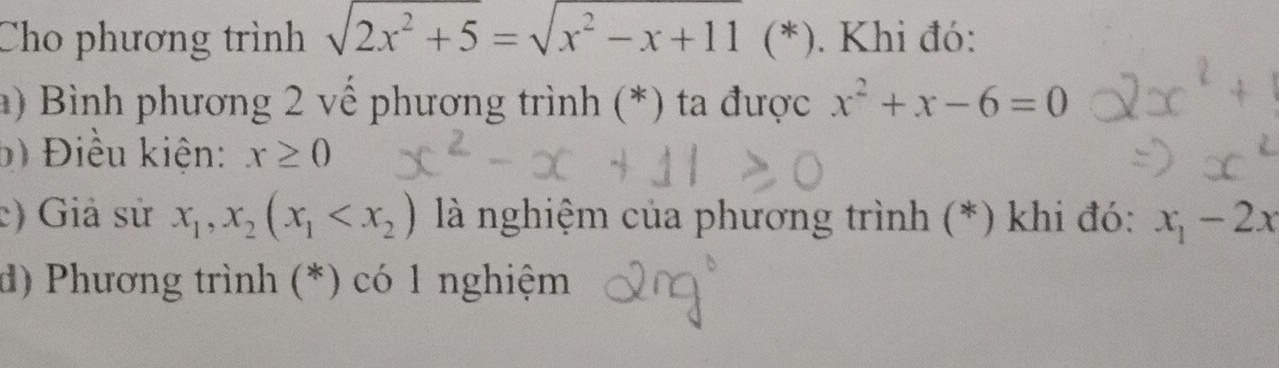 Cho phương trình √(2x² + 5) = √(x² − x + 11) (*). Khi đó:
a) Bình phương 2 vế phương trình (*) ta được x² + x − 6 = 0 2x² +
b) Điều kiện: x ≥ 0 x² − x + 11 ≥ 0 => x²
c) Giả sử x₁, x₂ (x₁ < x₂) là nghiệm của phương trình (*) khi đó: x₁ − 2x
d) Phương trình (*) có 1 nghiệm 2ng⁰